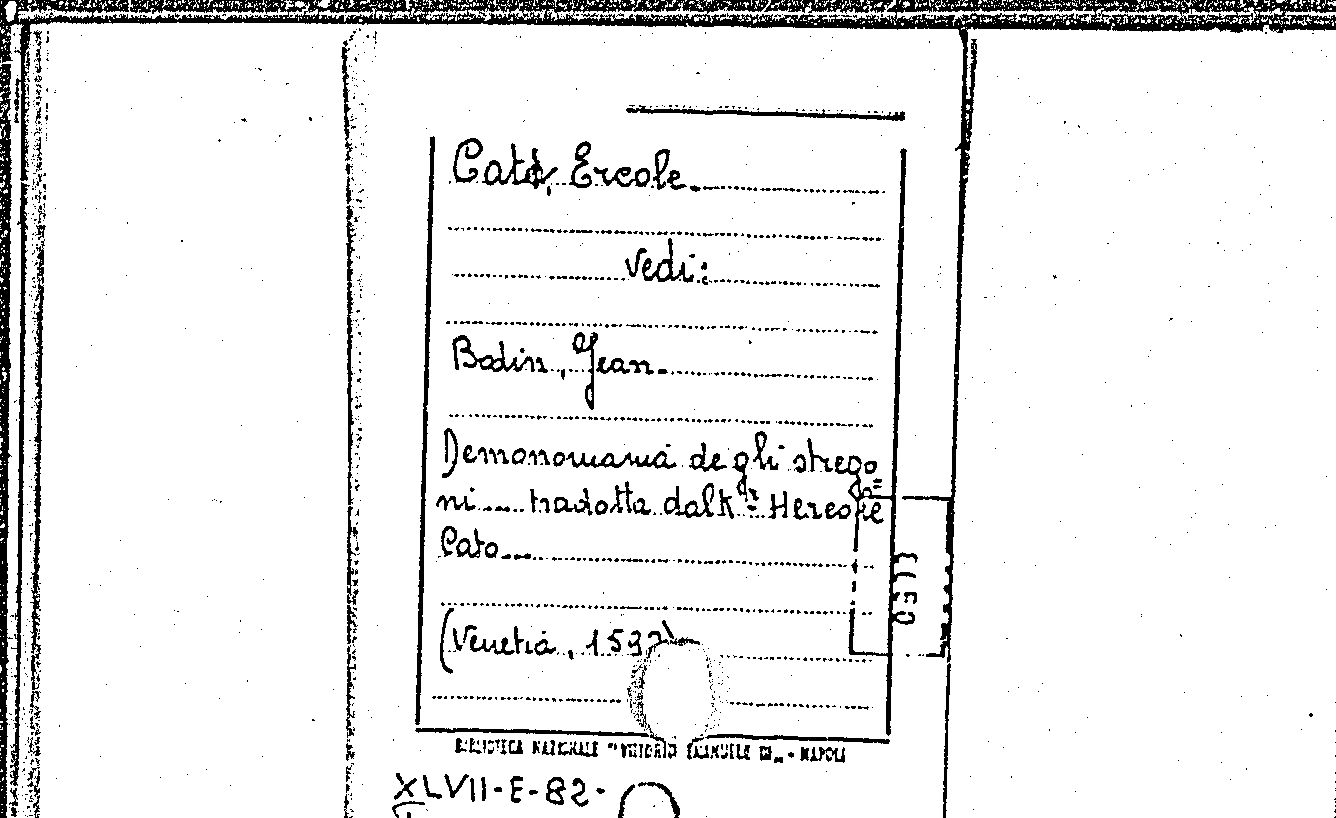 Cato, Ercole.
Vedi:
Bodin, Jean.
Demonomania degli strego
ni.... tradotta dal K.r Hercole
Cato...
(Venetia, 1592)
BIBLIOTECA NAZIONALE "VITTORIO EMANUELE III„ - NAPOLI
XLVII-E-82.